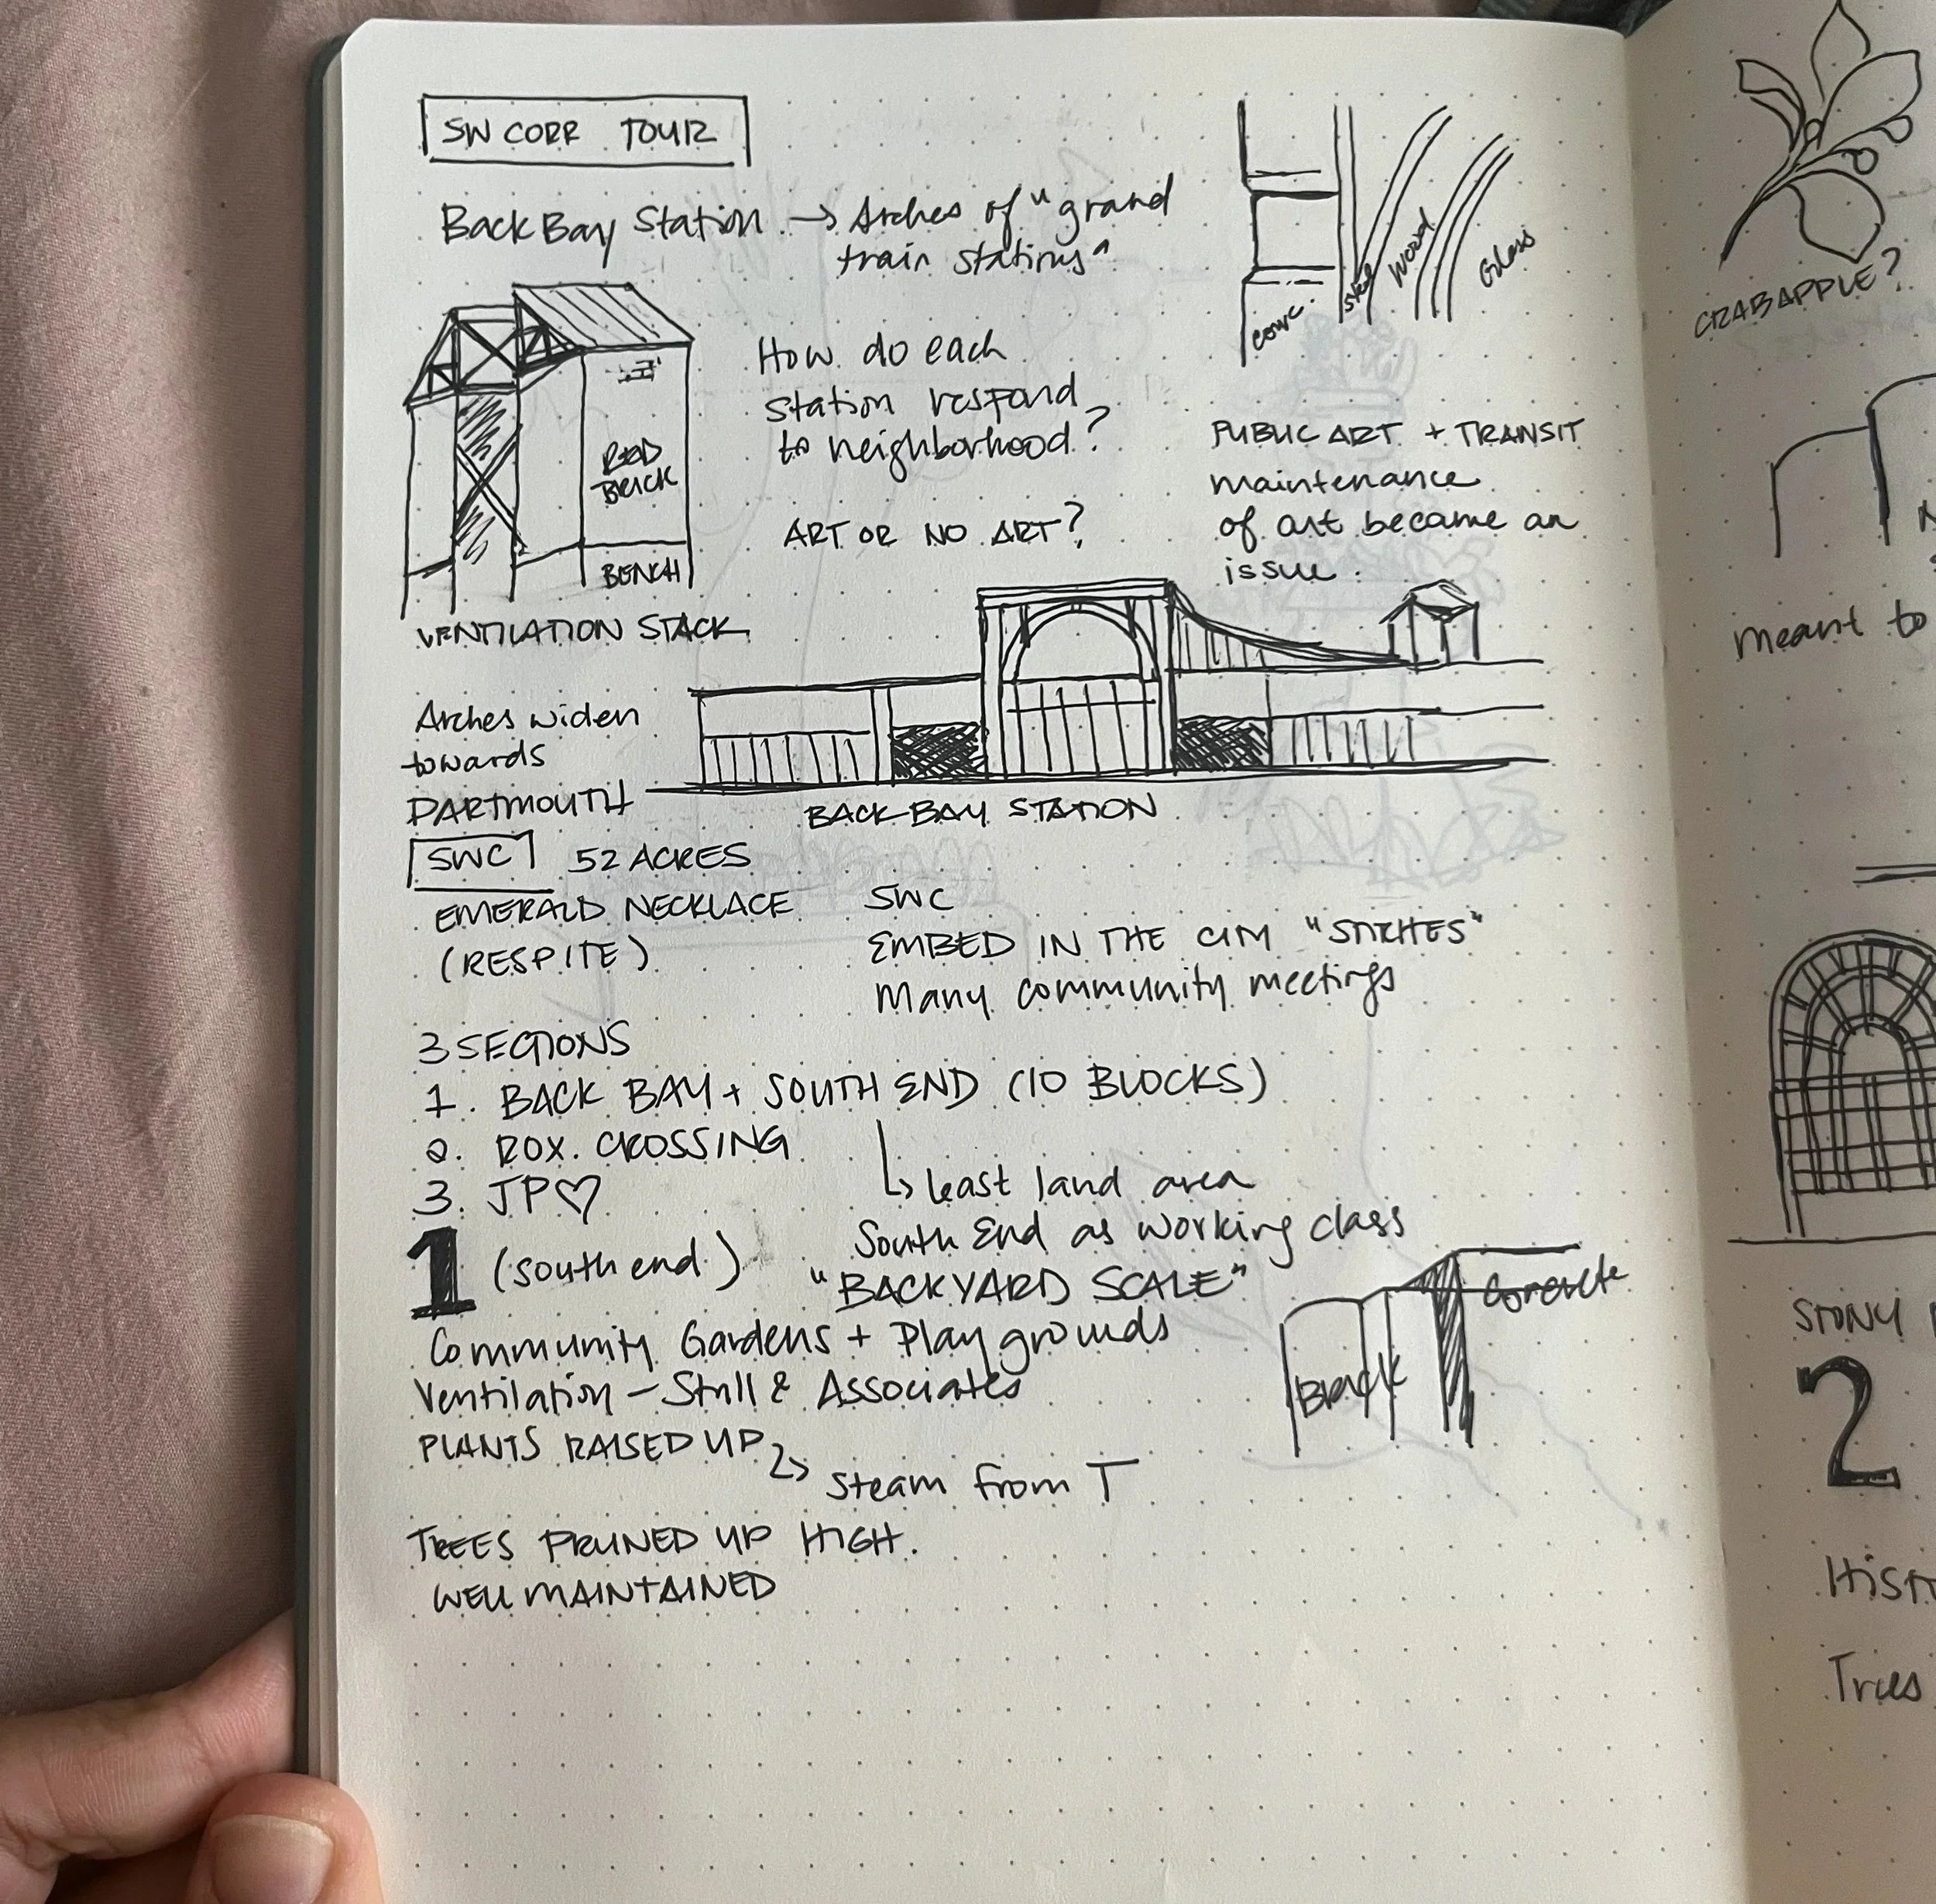 SW CORR TOUR
Back Bay Station → Arches of "grand
train stations"
conc.
steel
wood
Glass
How do each
station respond
to neighborhood?
ART OR NO ART?
PUBLIC ART + TRANSIT
maintenance
of art became an
issue.
RED
BRICK
BENCH
VENTILATION STACK
Arches widen
towards
DARTMOUTH
BACK BAY STATION
SWC 52 ACRES
EMERALD NECKLACE
(RESPITE)
SWC
EMBED IN THE CITY "STITCHES"
Many community meetings
3 SECTIONS
1. BACK BAY + SOUTH END (10 BLOCKS)
2. ROX. CROSSING
3. JP♡
↳ least land area
South End as working class
1 (south end)
"BACKYARD SCALE"
Community Gardens + Playgrounds
Ventilation – Stull & Associates
PLANTS RAISED UP
↳ steam from T
TREES PRUNED UP HIGH.
WELL MAINTAINED
Concrete
Brick
CRABAPPLE?
meant to
STONY
2
Trees